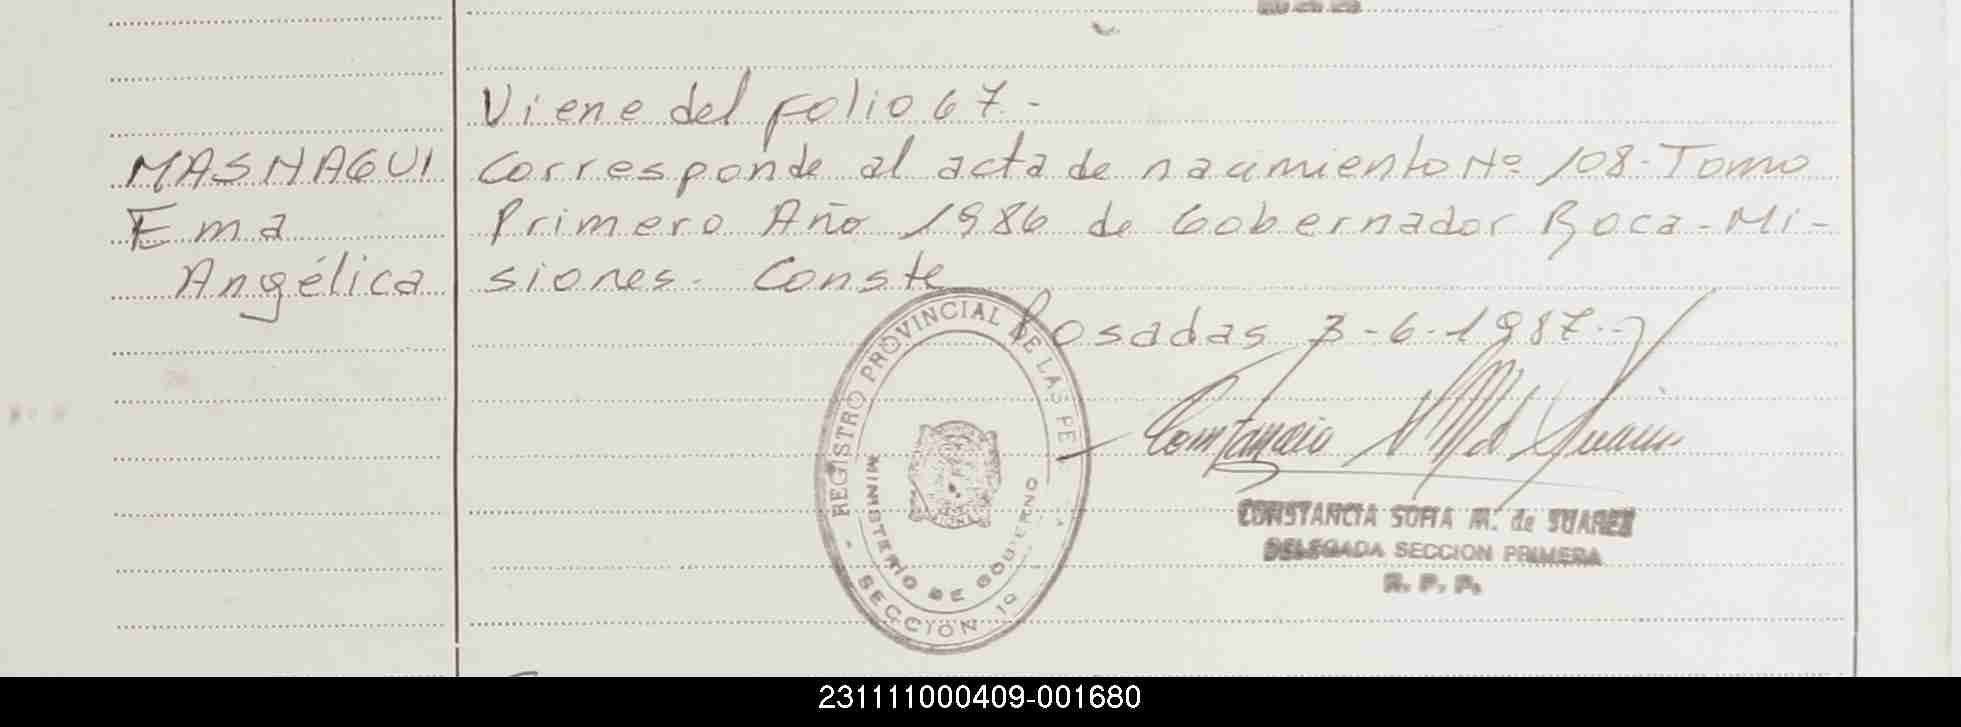 Viene del folio 67.-
MASNAGUI Corresponde al acta de nacimiento Nº 108- Tomo
Ema Primero Año 1986 de Gobernador Roca - Mi-
Angélica siones. Conste
Posadas 3-6-1987.-
REGISTRO PROVINCIAL DE LAS PE
MINISTERIO DE GOBIERNO
SECCION 1º
CONSTANCIA SOFIA M. de SUAREZ
DELEGADA SECCION PRIMERA
R. P. P.
231111000409-001680